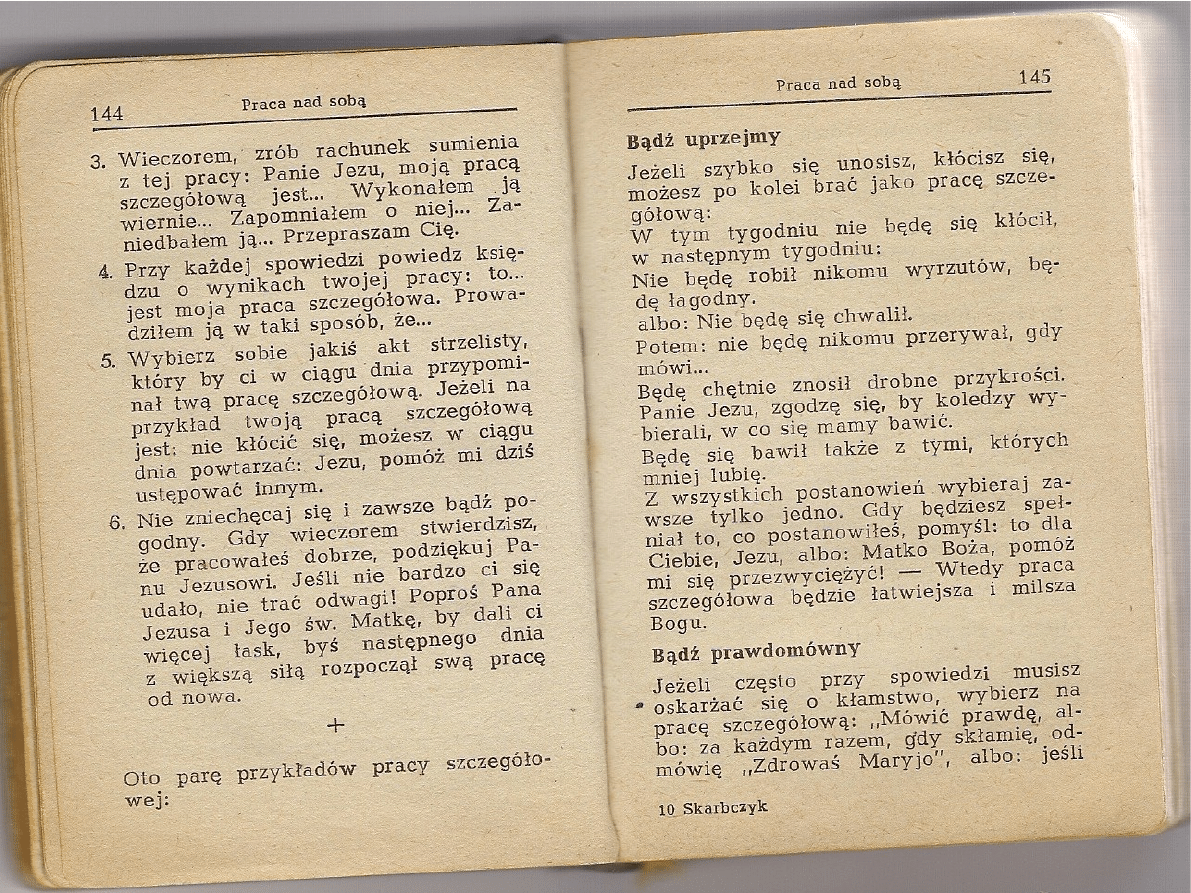 144
Praca nad sobą
3. Wieczorem, zrób rachunek sumienia
z tej pracy: Panie Jezu, moją pracą
szczegółową jest... Wykonałem ją
wiernie... Zapomniałem o niej... Za-
niedbałem ją... Przepraszam Cię.
4. Przy każdej spowiedzi powiedz księ-
dzu o wynikach twojej pracy: to...
jest moja praca szczegółowa. Prowa-
dziłem ją w taki sposób, że...
5. Wybierz sobie jakiś akt strzelisty,
który by ci w ciągu dnia przypomi-
nał twą pracę szczegółową. Jeżeli na
przykład twoją pracą szczegółową
jest: nie kłócić się, możesz w ciągu
dnia powtarzać: Jezu, pomóż mi dziś
ustępować innym.
6. Nie zniechęcaj się i zawsze bądź po-
godny. Gdy wieczorem stwierdzisz,
że pracowałeś dobrze, podziękuj Pa-
nu Jezusowi. Jeśli nie bardzo ci się
udało, nie trać odwagi! Poproś Pana
Jezusa i Jego św. Matkę, by dali ci
więcej łask, byś następnego dnia
z większą siłą rozpoczął swą pracę
od nowa.
+
Oto parę przykładów pracy szczegóło-
wej:
Praca nad sobą
145
Bądź uprzejmy
Jeżeli szybko się unosisz, kłócisz się,
możesz po kolei brać jako pracę szcze-
gółową:
W tym tygodniu nie będę się kłócił,
w następnym tygodniu:
Nie będę robił nikomu wyrzutów, bę-
dę łagodny.
albo: Nie będę się chwalił.
Potem: nie będę nikomu przerywał, gdy
mówi...
Będę chętnie znosił drobne przykrości.
Panie Jezu, zgodzę się, by koledzy wy-
bierali, w co się mamy bawić.
Będę się bawił także z tymi, których
mniej lubię.
Z wszystkich postanowień wybieraj za-
wsze tylko jedno. Gdy będziesz speł-
niał to, co postanowiłeś, pomyśl: to dla
Ciebie, Jezu, albo: Matko Boża, pomóż
mi się przezwyciężyć! — Wtedy praca
szczegółowa będzie łatwiejsza i milsza
Bogu.
Bądź prawdomówny
Jeżeli często przy spowiedzi musisz
oskarżać się o kłamstwo, wybierz na
pracę szczegółową: „Mówić prawdę, al-
bo: za każdym razem, gdy skłamię, od-
mówię „Zdrowaś Maryjo", albo: jeśli
10 Skarbczyk